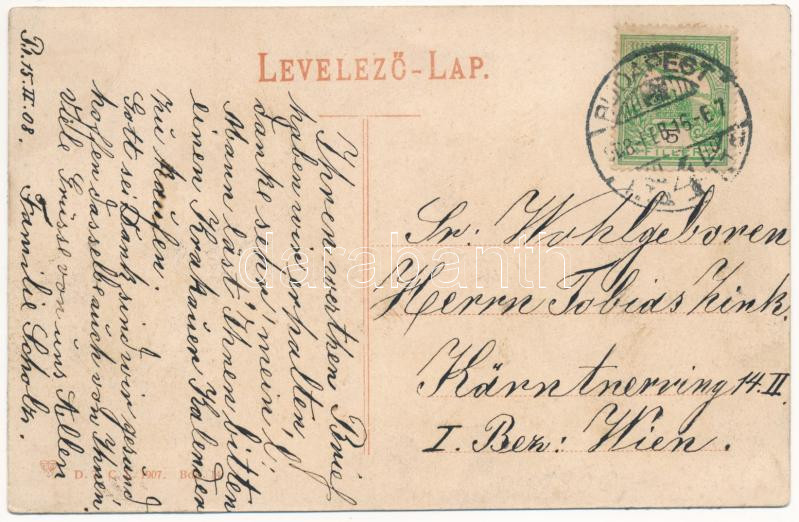 LEVELEZŐ-LAP.
BUDAPEST
FILLÉR
Sr: Wohlgeboren
Herrn Tobias Zink.
Kärntnerring 14. II
I. Bez: Wien.
Ihren werthen Brief
haben wir erhalten,
danke sehr! mein l:
Mann läst Ihnen bitten
einen Krakauer Kalender
zu kaufen.
Gott sei Dank sind wir gesund
hoffen dasselbe auch von Ihnen.
Viele Grüsse von uns Allen
Familie Scholz.
15. II. 08.
1907.
darabanth